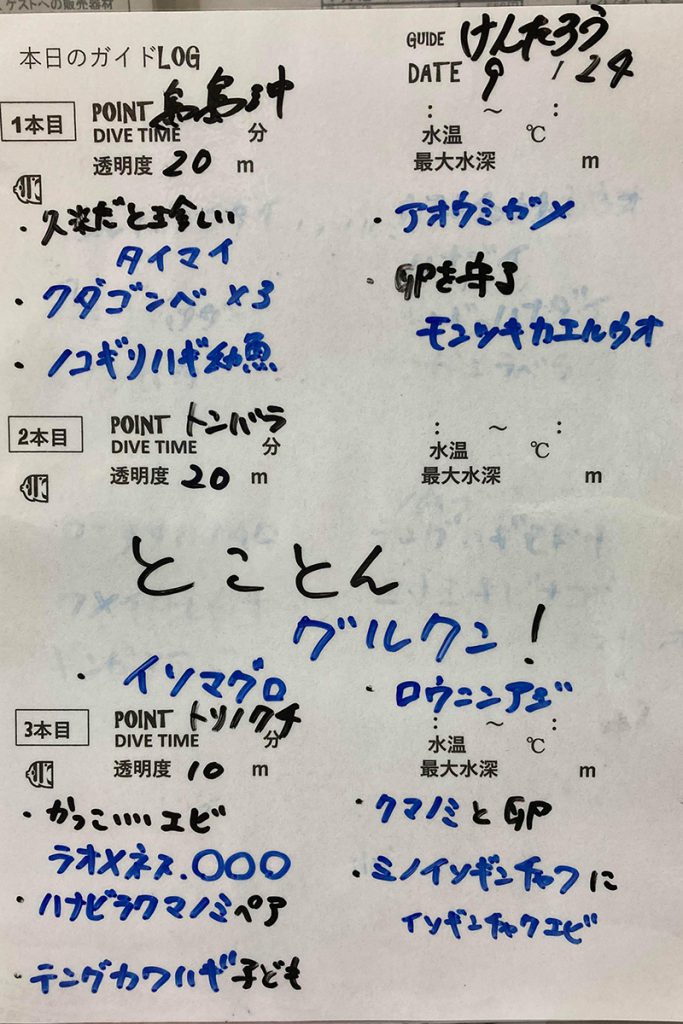 ゲストへの販売器材
本日のガイドLOG
GUIDE けんたろう
DATE 9 / 24
1本目
POINT 烏島沖
DIVE TIME 分
透明度 20 m
: ~ :
水温 ℃
最大水深 m
・久米だと珍しい
タイマイ
・クダゴンベ×3
・ノコギリハギ幼魚
・アオウミガメ
・GPを守る
モンツキカエルウオ
2本目
POINT トンバラ
DIVE TIME 分
透明度 20 m
: ~ :
水温 ℃
最大水深 m
とことん
グルクン!
・イソマグロ
・ロウニンアジ
3本目
POINT トリノクチ
DIVE TIME 分
透明度 10 m
: ~ :
水温 ℃
最大水深 m
・かっこいいエビ
ラオメネス.〇〇〇
・ハナビラクマノミペア
・テングカワハギ子ども
・クマノミとGP
・ミノイソギンチャクに
イソギンチャクエビ